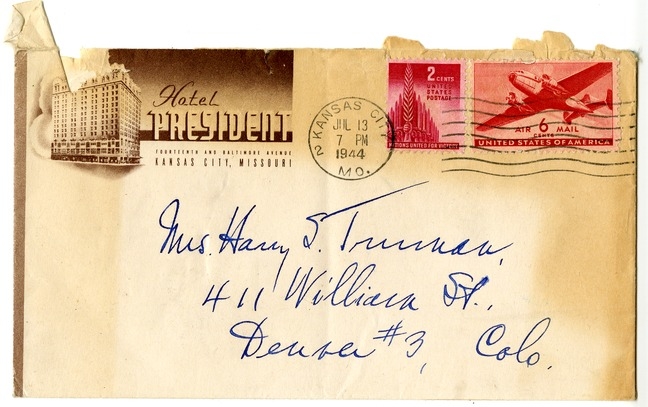 Hotel
PRESIDENT
FOURTEENTH AND BALTIMORE AVENUE
KANSAS CITY, MISSOURI
KANSAS CITY
2
JUL 13
7 PM
1944
MO.
2 CENTS
UNITED
STATES
POSTAGE
NATIONS UNITED FOR VICTORY
AIR 6 MAIL
CENTS
UNITED STATES OF AMERICA
Mrs. Harry S. Truman,
411 William St.,
Denver #3, Colo.